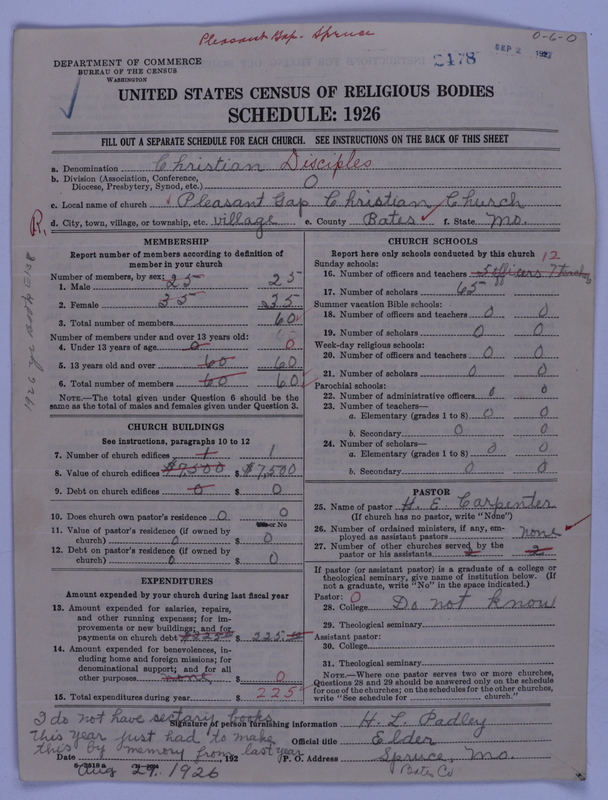 Pleasant Gap - Spruce
0-6-0
2478
SEP 2 1927
DEPARTMENT OF COMMERCE
BUREAU OF THE CENSUS
WASHINGTON
UNITED STATES CENSUS OF RELIGIOUS BODIES
SCHEDULE: 1926
FILL OUT A SEPARATE SCHEDULE FOR EACH CHURCH. SEE INSTRUCTIONS ON THE BACK OF THIS SHEET
a. Denomination Christian Disciples
b. Division (Association, Conference, Diocese, Presbytery, Synod, etc.) 0
c. Local name of church Pleasant Gap Christian Church
R. d. City, town, village, or township, etc. village e. County Bates f. State Mo.
MEMBERSHIP
Report number of members according to definition of member in your church
Number of members, by sex:
1. Male 25 25
2. Female 35 35
3. Total number of members 60
Number of members under and over 13 years old:
4. Under 13 years of age 0 0
5. 13 years old and over 60 60
6. Total number of members 60 60
NOTE.—The total given under Question 6 should be the same as the total of males and females given under Question 3.
CHURCH BUILDINGS
See instructions, paragraphs 10 to 12
7. Number of church edifices 1 1
8. Value of church edifices $7,500 $ $7,500
9. Debt on church edifices 0 $ 0
10. Does church own pastor's residence 0 0
Yes or No
11. Value of pastor's residence (if owned by church) 0 $ 0
12. Debt on pastor's residence (if owned by church) 0 $ 0
EXPENDITURES
Amount expended by your church during last fiscal year
13. Amount expended for salaries, repairs, and other running expenses; for improvements or new buildings; and for payments on church debt $225 $ 225
14. Amount expended for benevolences, including home and foreign missions; for denominational support; and for all other purposes none $ 0
15. Total expenditures during year $ 225
CHURCH SCHOOLS
Report here only schools conducted by this church
Sunday schools: 12
16. Number of officers and teachers 5 officers 7 teachers
17. Number of scholars 65
Summer vacation Bible schools:
18. Number of officers and teachers 0 0
19. Number of scholars 0 0
Week-day religious schools:
20. Number of officers and teachers 0 0
21. Number of scholars 0 0
Parochial schools:
22. Number of administrative officers 0 0
23. Number of teachers—
a. Elementary (grades 1 to 8) 0 0
b. Secondary 0 0
24. Number of scholars—
a. Elementary (grades 1 to 8) 0 0
b. Secondary 0 0
PASTOR
25. Name of pastor H. E. Carpenter
(If church has no pastor, write "None")
26. Number of ordained ministers, if any, employed as assistant pastors none
27. Number of other churches served by the pastor or his assistants 2 2
If pastor (or assistant pastor) is a graduate of a college or theological seminary, give name of institution below. (If not a graduate, write "No" in the space indicated.)
Pastor: 0
28. College Do not know
29. Theological seminary
Assistant pastor:
30. College
31. Theological seminary
NOTE.—Where one pastor serves two or more churches, Questions 28 and 29 should be answered only on the schedule for one of the churches; on the schedules for the other churches, write "See schedule for church."
I do not have sectary books
this year just had to make
this by memory from last year
Signature of person furnishing information H. L. Padley
Official title Elder
Date Aug 29, 1926 192
P. O. Address Spruce, Mo.
Bates Co